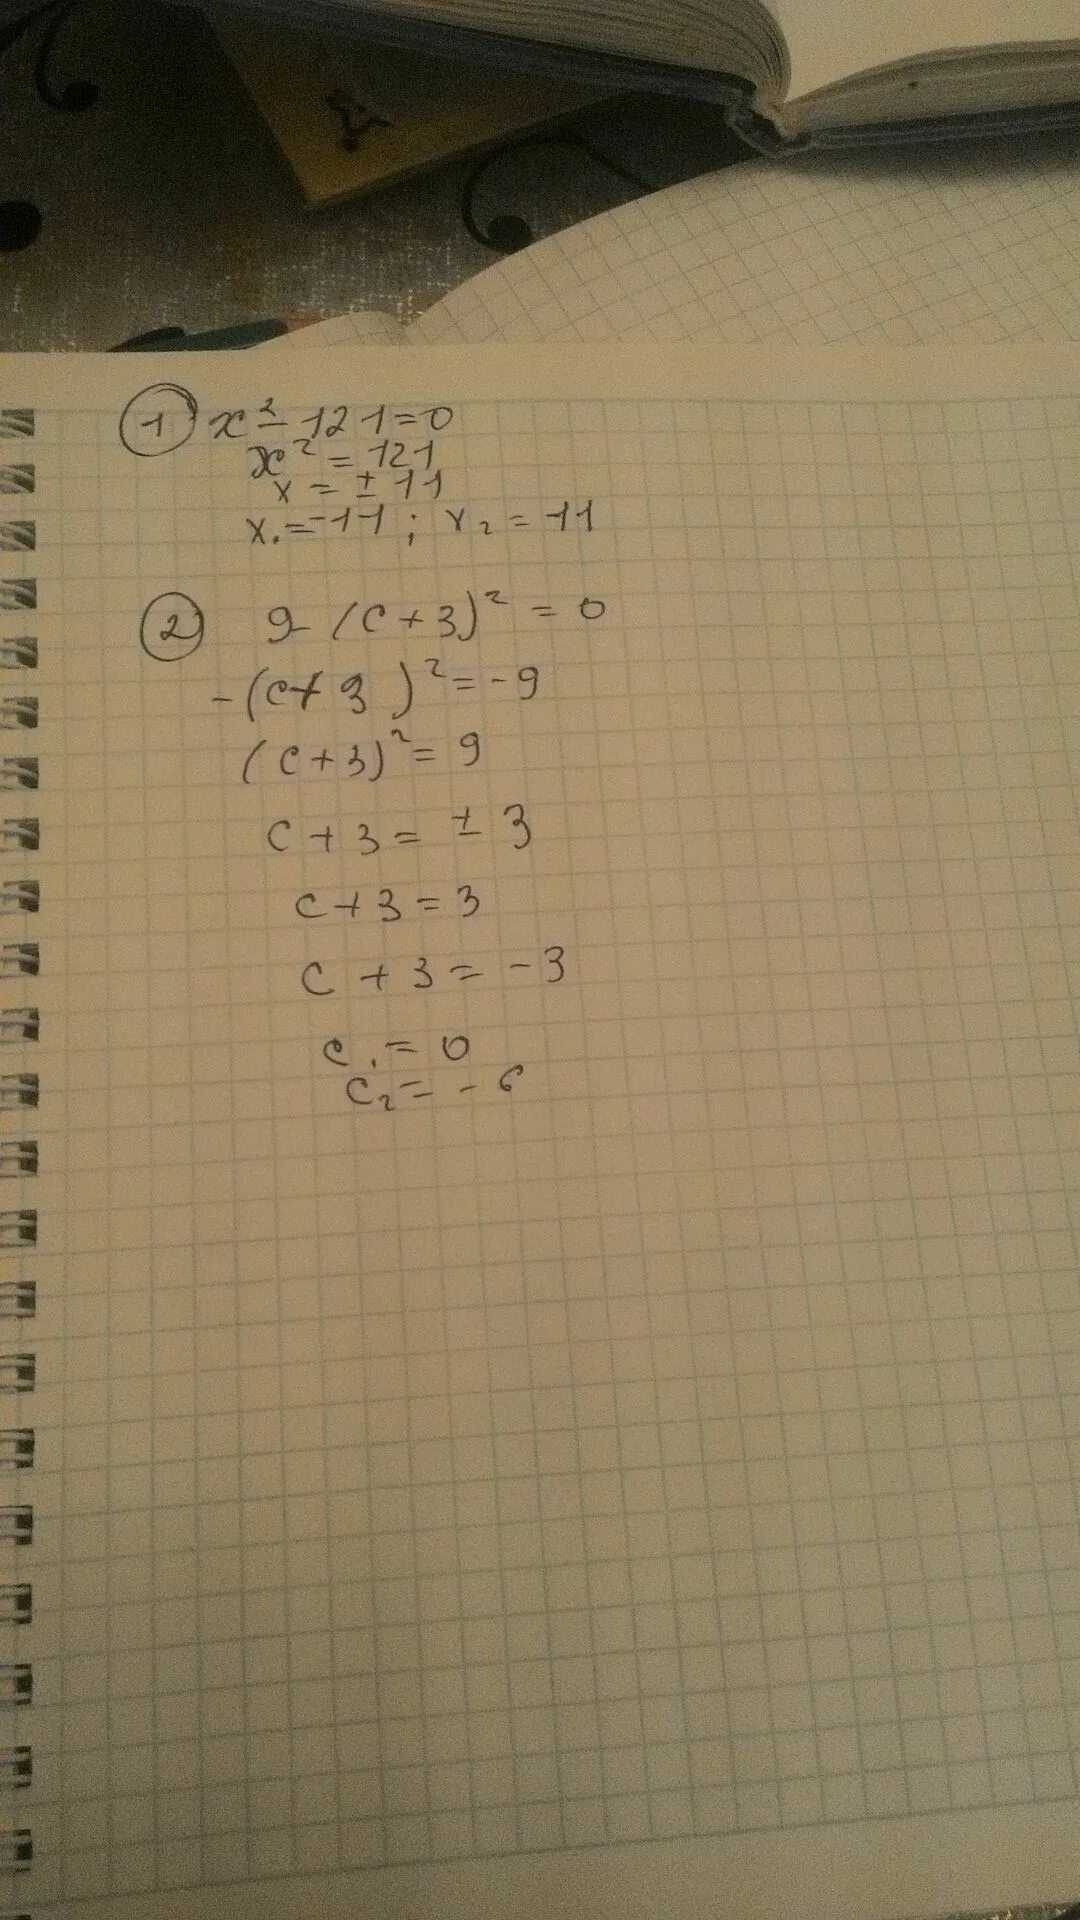 1 x² - 121 = 0
x² = 121
x = ± 11
x₁ = -11 ; x₂ = 11
2 9 - (c + 3)² = 0
- (c + 3)² = - 9
(c + 3)² = 9
c + 3 = ± 3
c + 3 = 3
c + 3 = - 3
c₁ = 0
c₂ = - 6